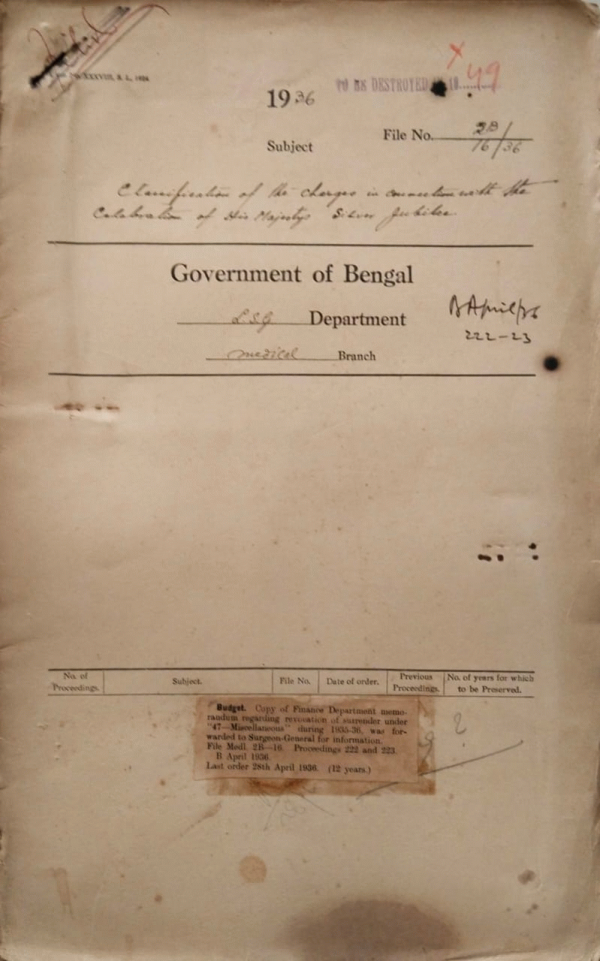 XXXVIII, S. L., 1934.
TO BE DESTROYED IN 19 49
1936
File No. 2B/
16/36
Subject
Classification of the charges in connection with the
Celebration of His Majesty's Silver Jubilee
Government of Bengal
L.S.G Department
B April/36
222-23
Medical Branch
No. of Proceedings.
Subject.
File No.
Date of order.
Previous Proceedings.
No. of years for which to be Preserved.
Budget. Copy of Finance Department memo-
randum regarding revocation of surrender under
"47—Miscellaneous" during 1935-36, was for-
warded to Surgeon-General for information.
File Medl. 2B—16. Proceedings 222 and 223.
B April 1936.
Last order 28th April 1936. (12 years.)
?